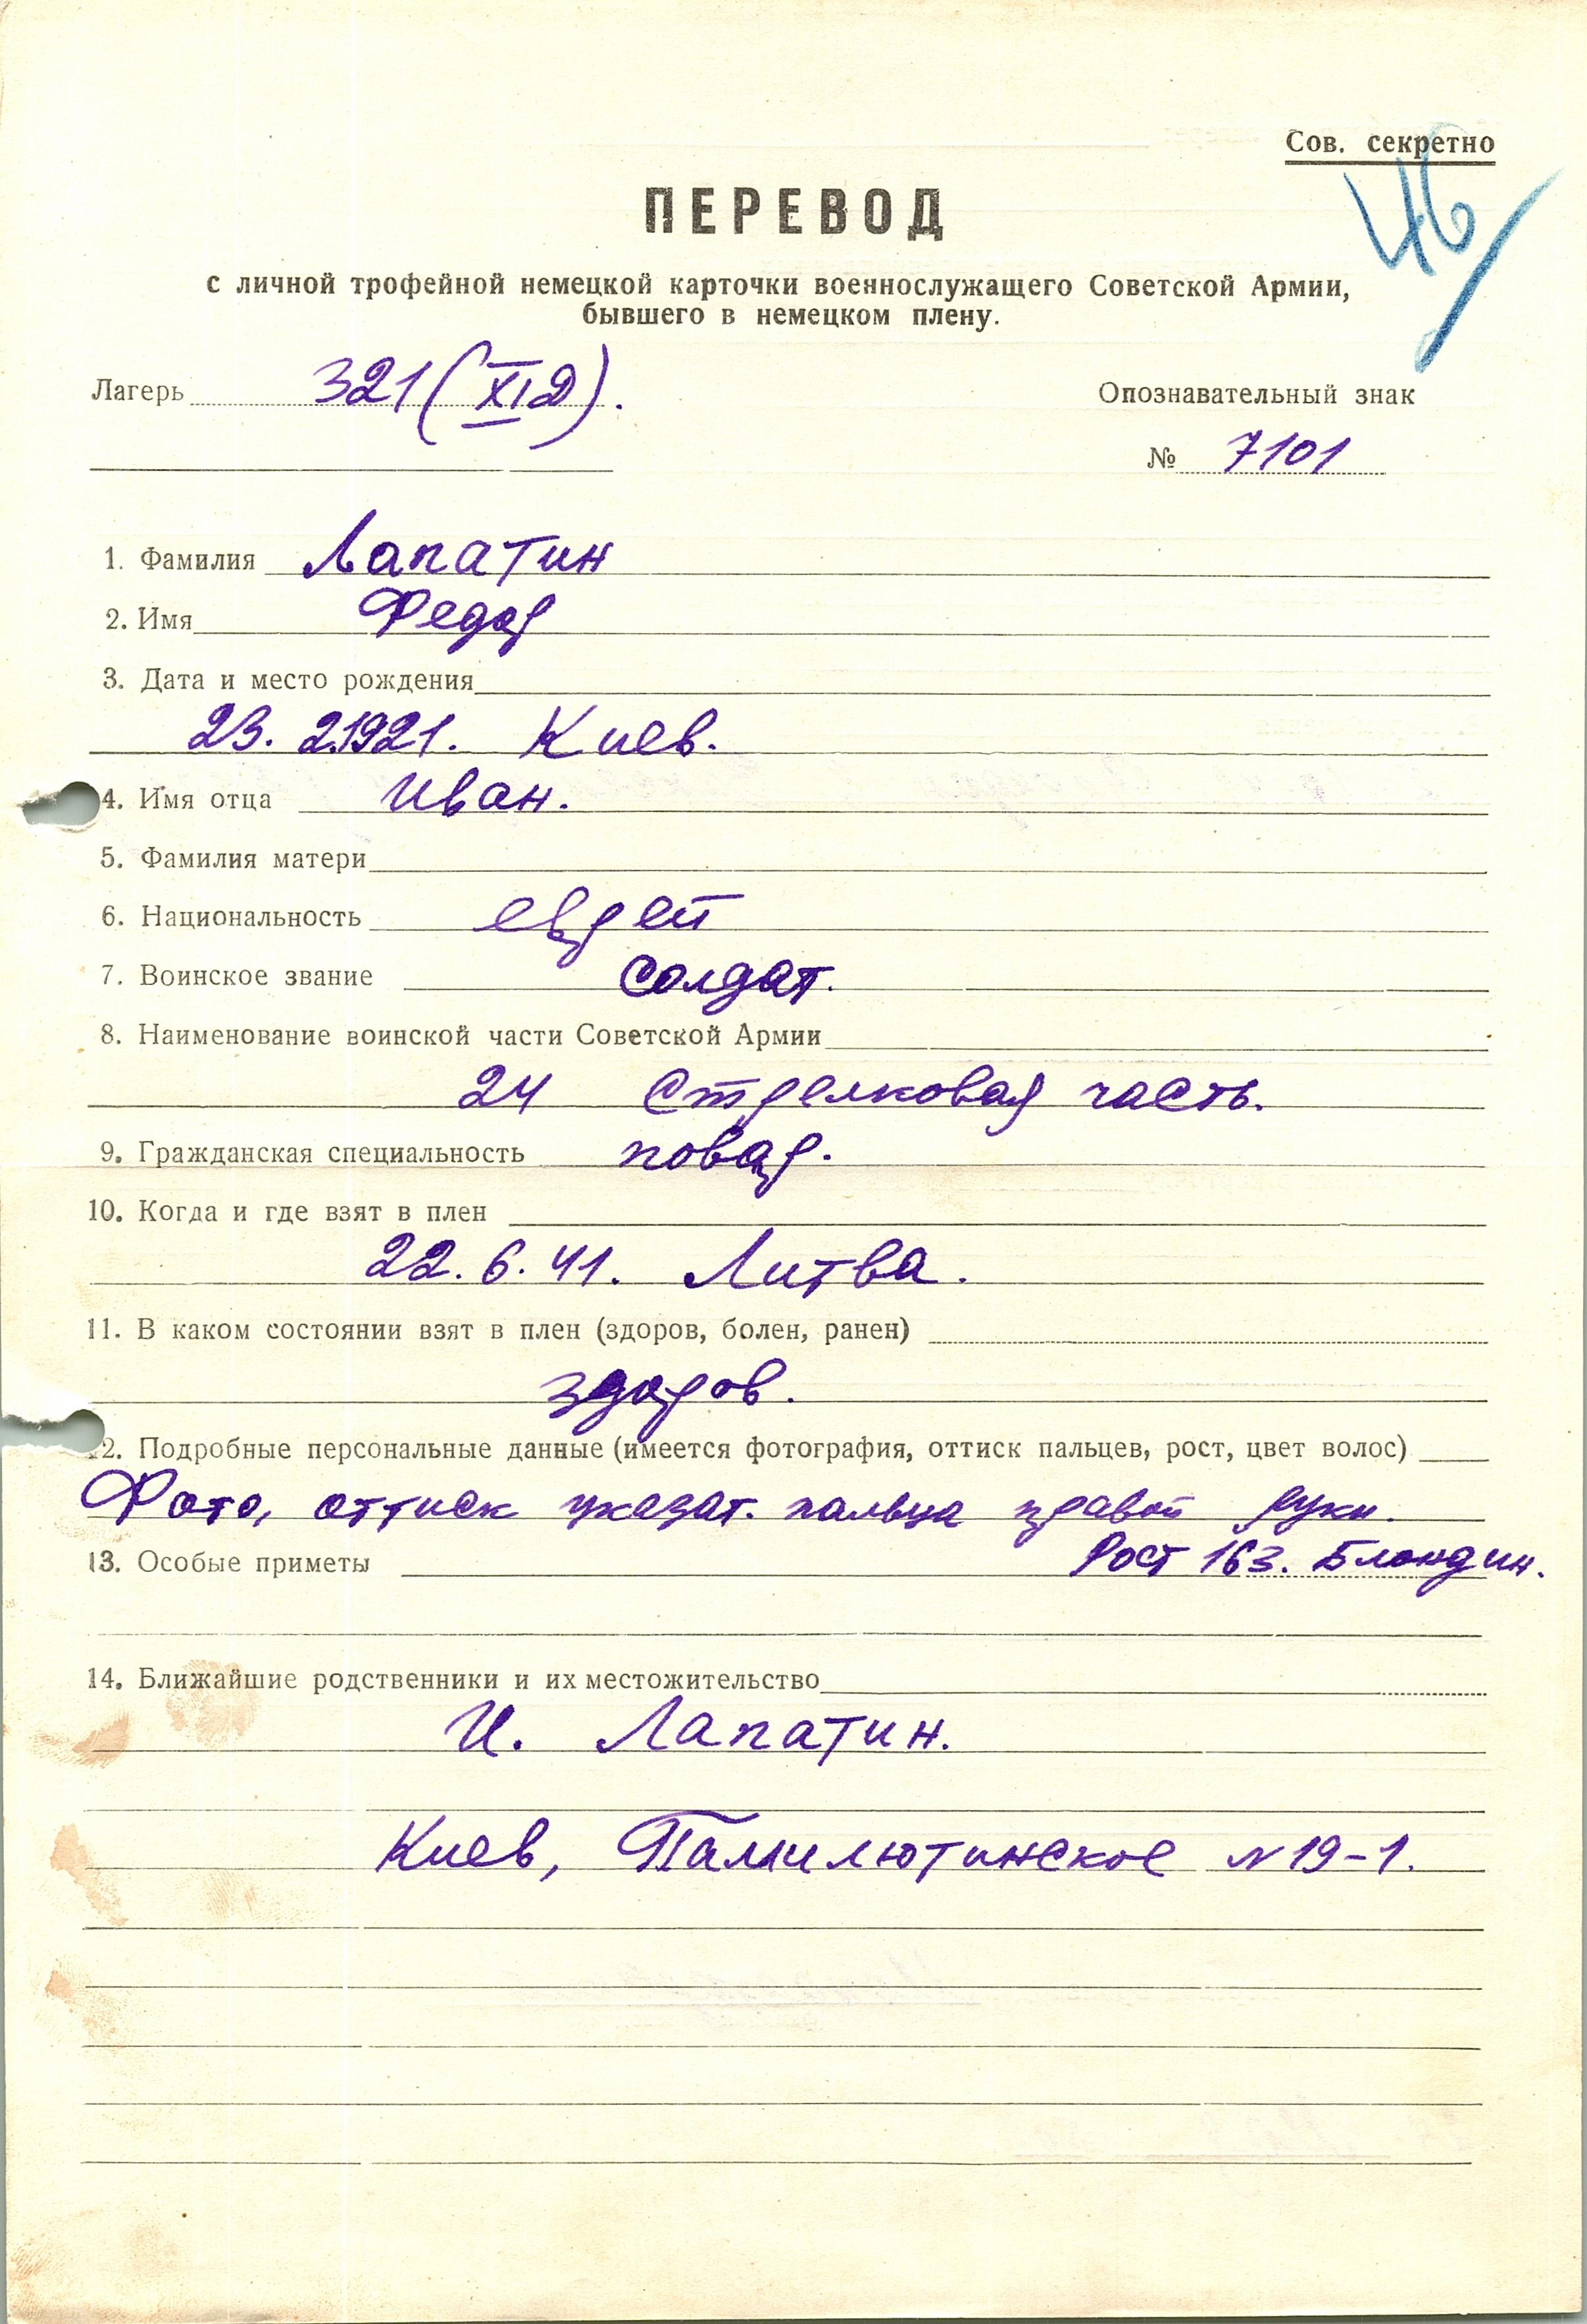 Сов. секретно
46
ПЕРЕВОД
с личной трофейной немецкой карточки военнослужащего Советской Армии,
бывшего в немецком плену.
Лагерь 321 (XI Д).
Опознавательный знак
№ 7101
1. Фамилия Лапатин
2. Имя Федор
3. Дата и место рождения
23. 2.1921. Киев.
4. Имя отца Иван.
5. Фамилия матери
6. Национальность еврей
7. Воинское звание солдат.
8. Наименование воинской части Советской Армии
24 Стрелковая часть.
9. Гражданская специальность повар.
10. Когда и где взят в плен
22. 6. 41. Литва.
11. В каком состоянии взят в плен (здоров, болен, ранен)
здоров.
12. Подробные персональные данные (имеется фотография, оттиск пальцев, рост, цвет волос)
Фото, оттиск указат. пальца правой руки.
13. Особые приметы Рост 163. Блондин.
14. Ближайшие родственники и их местожительство
И. Лапатин.
Киев, Памилютинское №19-1.